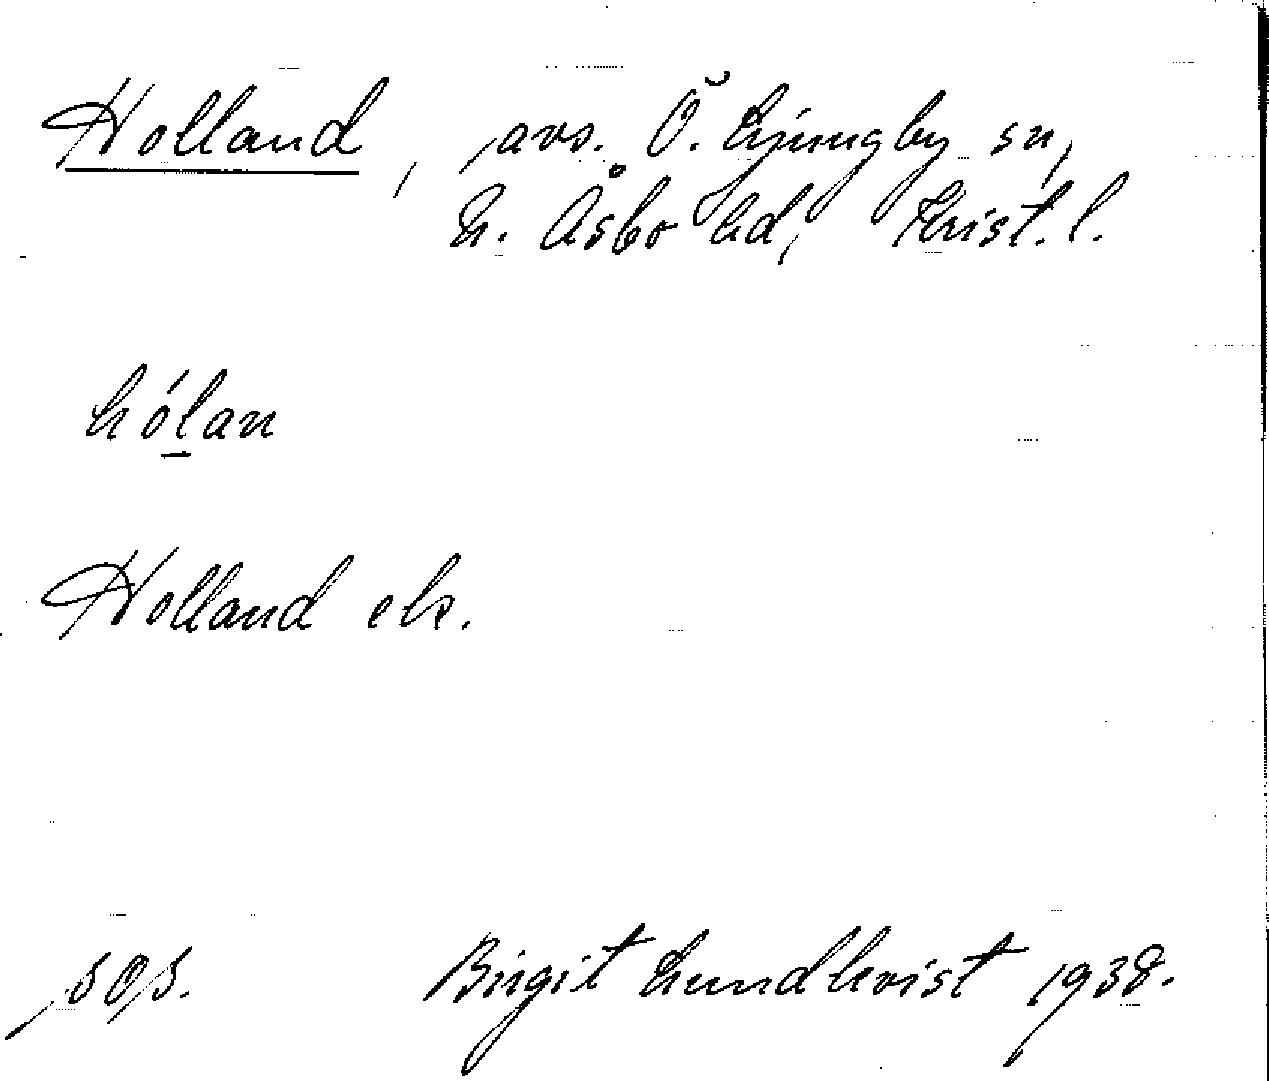 Holland, avs. Ö. Ljungby sn,
N. Åsbo hd, Krist. l.
hólan
Holland ek.
sos.
Birgit Lundkvist 1938.